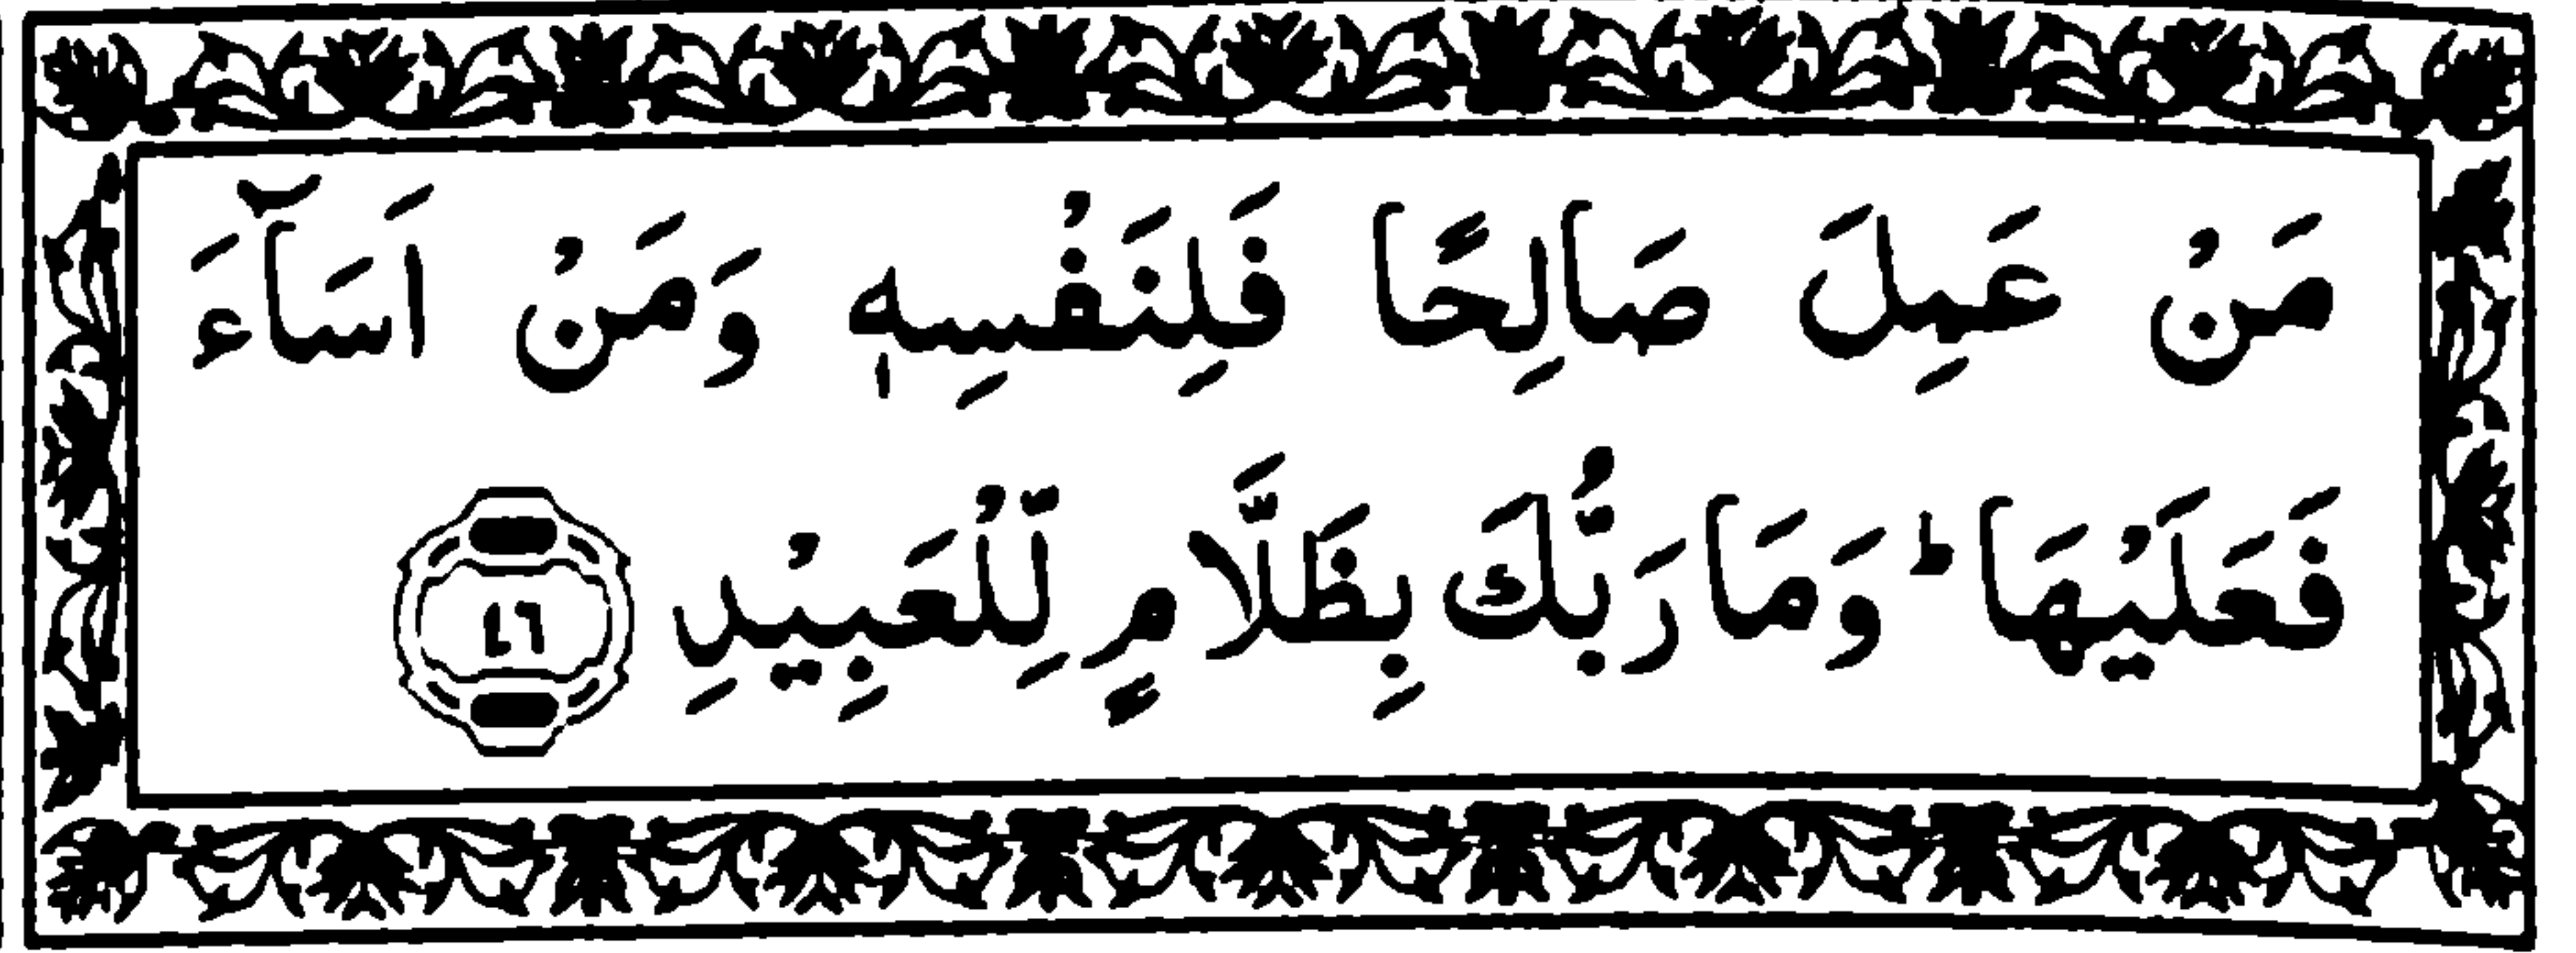 مَنْ عَمِلَ صَالِحًا فَلِنَفْسِهٖ وَمَنْ اَسَآءَ
فَعَلَيْهَا ؕ وَمَا رَبُّكَ بِظَلَّامٍ لِّلْعَبِيْدِ ٤٦